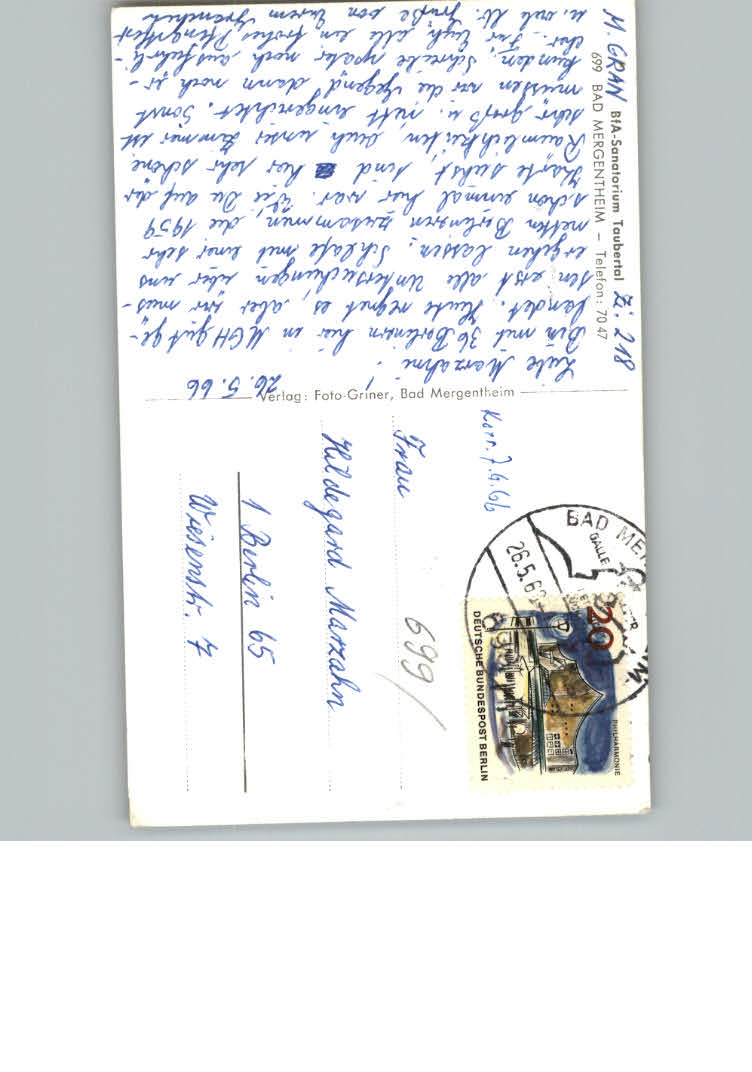 M. GRAN
BfA-Sanatorium Taubertal Zi. 218
699 BAD MERGENTHEIM – Telefon: 70 47
26.5.66
Liebe Marzahne!
Bin mit 36 Berlinern hier in MGH gut ge-
landet. Heute regnet es, aber wir müs-
sen erst alle Untersuchungen über uns
ergehen lassen. Schlafe mit einer sehr
netten Berlinerin zusammen, die 1959
schon einmal hier war. Wie Du auf der
Karte siehst sind hier sehr schöne
Räumlichkeiten, auch unser Zimmer ist
sehr groß u. nett eingerichtet. Sonst
müssen wir die Gegend dann noch er-
kunden. Schreibe später noch ausführli-
cher. Für Euch alle ein frohes Pfingstfest
u. viele lb. Grüße von Eurem
Verlag: Foto-Griner, Bad Mergentheim
Korr. 7.6.66
Frau
Hildegard Marzahn
1 Berlin 65
Wiesenstr. 7
699/
BAD MER
26.5.6
20
PHILHARMONIE
DEUTSCHE BUNDESPOST BERLIN